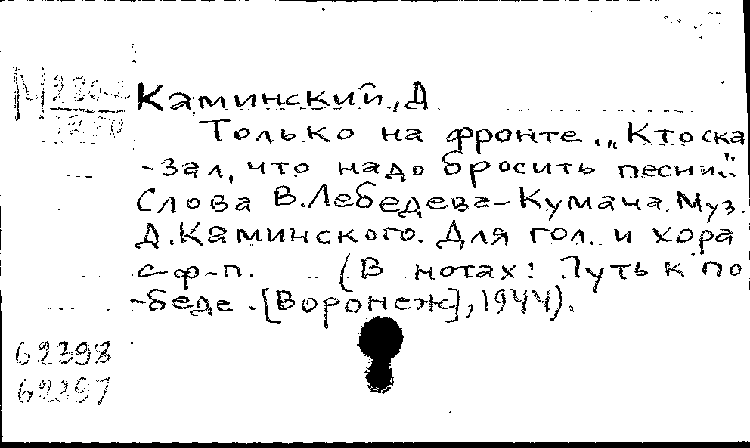 Каминский, Д
Только на фронте. „Кто ска
-зал, что надо бросить песни..."
Слова В. Лебедева-Кумача. Муз.
Д. Каминского. Для гол. и хора
с ф-п. (В нотах: Путь к по
-беде. [Воронеж], 1944).
62398
62397